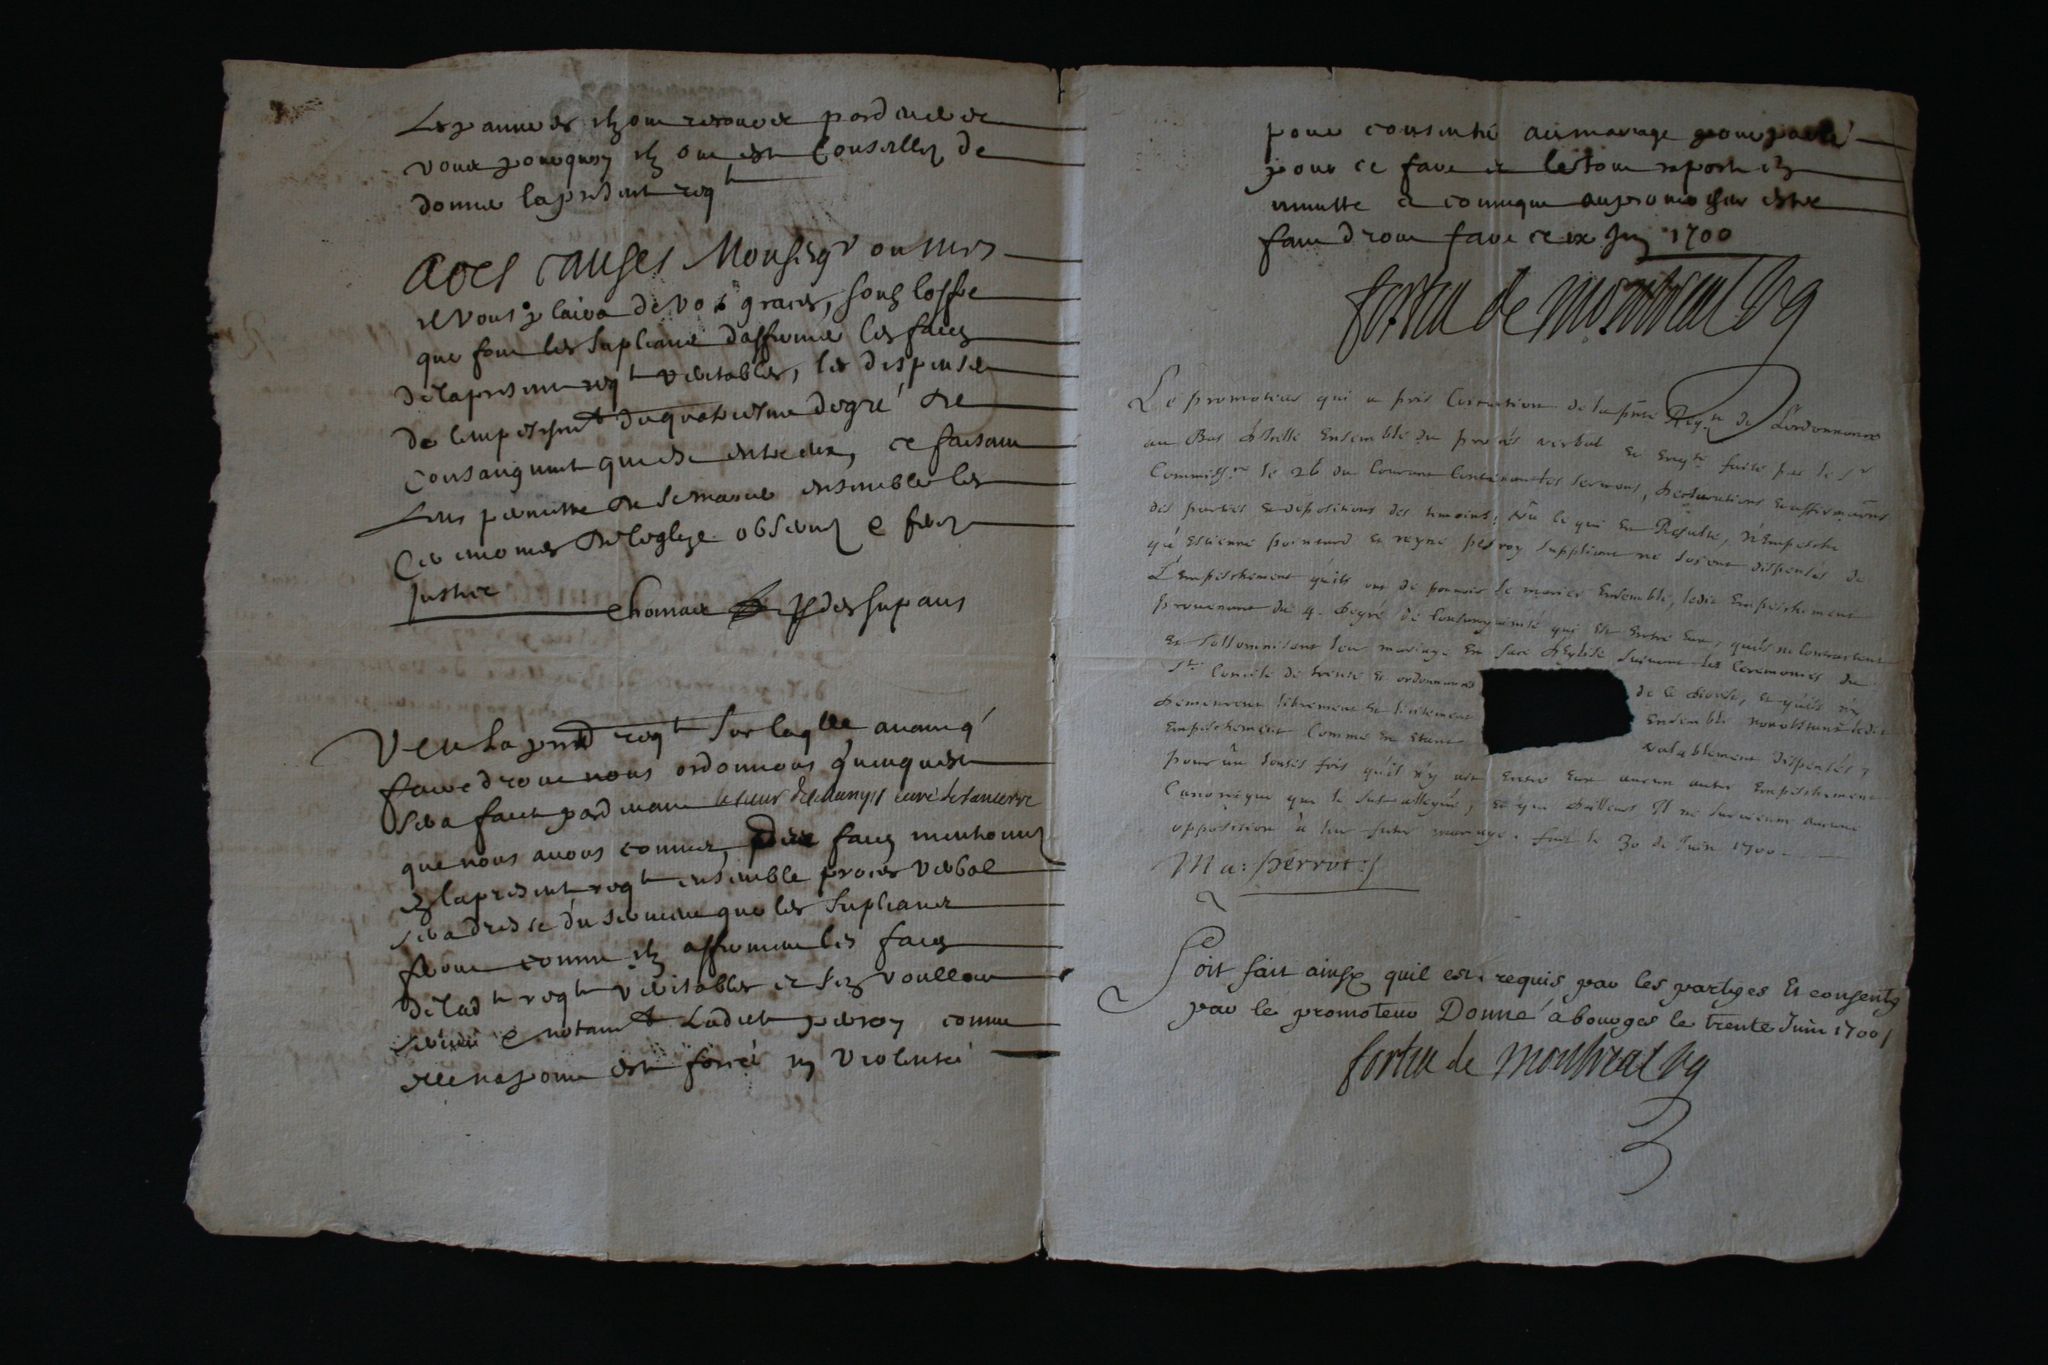 vous pourquoy ilz ont esté Conseillez de
donner la present reqt
A ces causes Monseigr ou mrs
il vous plaira de vos graces, soubz loffre
que font les suplians daffirmer les faitz
de la present reqt veritables, les dispenser
de lempeschemt du quatriesme degré de
consanguinit qui est entre eux, ce faisant
leur permettre de se marier ensemble les
Ceremonies de leglize observz e ferez
Justice
des supans
Veu la pnt reqt sur laqlle avant q
faire droit nous ordonnons quenqueste
sera faict pardevant le sieur curé de sancerre
que nous avons commis, des faitz mentionnez
en la present reqt ensemble proces verbal
sera dressé du serment que les supliants
feront comme ilz affirment les faitz
de lad reqt veritables et
e notamt Ladict perroy comme
elle na point esté forcé ny violenté
pour consentir au mariage
pour ce faire et le tout raporté en
minutte et communiqué au promotheur estre
faire droit fait ce ix Juin 1700
fortia de montreal vg
Le promoteur qui a pris Lecture de la pnte Reqte de L'ordonnance
au Bas d'Icelle Ensemble du procés verbal et Enqte faite par le Sr
Commissre le 26 du Courant Contenant les sermens, declarations et affirmaons
des parties et depositions des temoins; Vû ce qui en Resulte, n'Empesche
qu'Estienne poinard et reyne perroy supplians ne soient dispensés de
L'Empeschement qu'ils ont de pouvoir se marier Ensemble, ledit Empeschement
provenant du 4. degré de Consanguinité qui Est Entre Eux, qu'ils ne Contractent
et sollemnisent leur mariage En face d'Eglise suivant les Ceremonies du
St Concile de trente et ordonnances de ce diocese, et qu'ils ne
demeurent librement et licitement Ensemble nonobstant ledit
Empeschement Comme en Etant valablement dispensés,
pourvû toutes fois qu'il n'y ait Entre Eux aucun autre Empeschement
Canonique que le susallegué, et que d'ailleurs Il ne survienne aucune
opposition à leur futur mariage. fait le 30 de Juin 1700
Ma: perrot
Soit fait ainsy quil est requis par les partyes Et consenty
par le promoteur Donné à bourges le trente Juin 1700
fortia de montreal vg